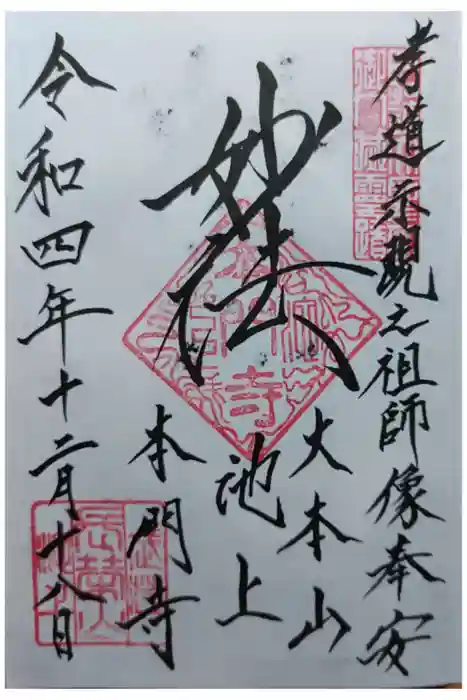 孝道示現之祖師像奉安
妙法
大本山
池上
本門寺
令和四年十二月十八日